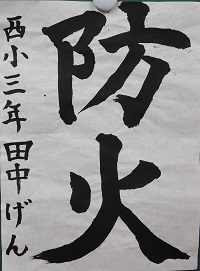 防火
西小三年田中げん